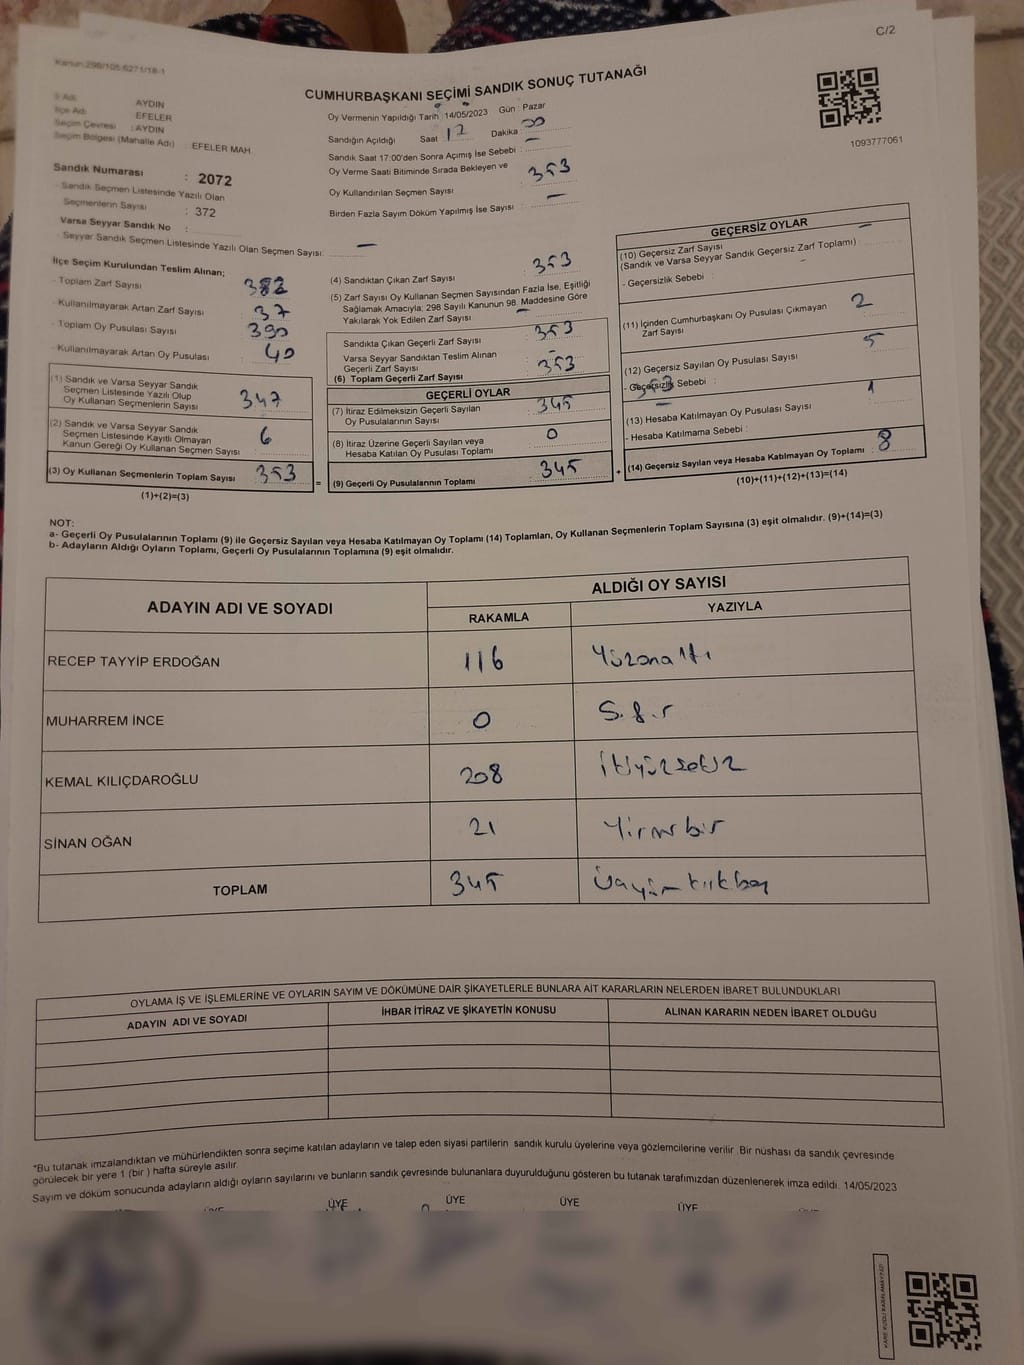 C/2
Kanun:298/105,6271/18-1
CUMHURBAŞKANI SEÇİMİ SANDIK SONUÇ TUTANAĞI
İl Adı AYDIN
İlçe Adı EFELER
Seçim Çevresi : AYDIN
Seçim Bölgesi (Mahalle Adı) : EFELER MAH.
Sandık Numarası : 2072
- Sandık Seçmen Listesinde Yazılı Olan
Seçmenlerin Sayısı : 372
Varsa Seyyar Sandık No :
- Seyyar Sandık Seçmen Listesinde Yazılı Olan Seçmen Sayısı: –
Oy Vermenin Yapıldığı Tarih : 14/05/2023 Gün : Pazar
Sandığın Açıldığı Saat 17 Dakika : 00
Sandık Saat 17:00'den Sonra Açımış İse Sebebi : –
Oy Verme Saati Bitiminde Sırada Bekleyen ve
Oy Kullandırılan Seçmen Sayısı 353
Birden Fazla Sayım Döküm Yapılmış İse Sayısı –
1093777061
İlçe Seçim Kurulundan Teslim Alınan;
- Toplam Zarf Sayısı 382
- Kullanılmayarak Artan Zarf Sayısı 37
- Toplam Oy Pusulası Sayısı 390
- Kullanılmayarak Artan Oy Pusulası 40
(1) Sandık ve Varsa Seyyar Sandık
Seçmen Listesinde Yazılı Olup
Oy Kullanan Seçmenlerin Sayısı 347
(2) Sandık ve Varsa Seyyar Sandık
Seçmen Listesinde Kayıtlı Olmayan
Kanun Gereği Oy Kullanan Seçmen Sayısı 6
(3) Oy Kullanan Seçmenlerin Toplam Sayısı 353
(1)+(2)=(3)
(4) Sandıktan Çıkan Zarf Sayısı 353
(5) Zarf Sayısı Oy Kullanan Seçmen Sayısından Fazla İse, Eşitliği
Sağlamak Amacıyla, 298 Sayılı Kanunun 98. Maddesine Göre
Yakılarak Yok Edilen Zarf Sayısı –
Sandıkta Çıkan Geçerli Zarf Sayısı 353
Varsa Seyyar Sandıktan Teslim Alınan
Geçerli Zarf Sayısı –
(6) Toplam Geçerli Zarf Sayısı 353
GEÇERLİ OYLAR
(7) İtiraz Edilmeksizin Geçerli Sayılan
Oy Pusulalarının Sayısı 345
(8) İtiraz Üzerine Geçerli Sayılan veya
Hesaba Katılan Oy Pusulası Toplamı 0
= (9) Geçerli Oy Pusulalarının Toplamı 345
GEÇERSİZ OYLAR
(10) Geçersiz Zarf Sayısı –
(Sandık ve Varsa Seyyar Sandık Geçersiz Zarf Toplamı) :
- Geçersizlik Sebebi : –
(11) İçinden Cumhurbaşkanı Oy Pusulası Çıkmayan
Zarf Sayısı 2
(12) Geçersiz Sayılan Oy Pusulası Sayısı 5
- Geçersizlik Sebebi : 353
(13) Hesaba Katılmayan Oy Pusulası Sayısı 1
- Hesaba Katılmama Sebebi :
+ (14) Geçersiz Sayılan veya Hesaba Katılmayan Oy Toplamı : 8
(10)+(11)+(12)+(13)=(14)
NOT:
a- Geçerli Oy Pusulalarının Toplamı (9) ile Geçersiz Sayılan veya Hesaba Katılmayan Oy Toplamı (14) Toplamları, Oy Kullanan Seçmenlerin Toplam Sayısına (3) eşit olmalıdır. (9)+(14)=(3)
b- Adayların Aldığı Oyların Toplamı, Geçerli Oy Pusulalarının Toplamına (9) eşit olmalıdır.
ADAYIN ADI VE SOYADI ALDIĞI OY SAYISI
RAKAMLA YAZIYLA
RECEP TAYYİP ERDOĞAN 116 Yüzonaltı
MUHARREM İNCE 0 Sıfır
KEMAL KILIÇDAROĞLU 208 İkiyüzsekiz
SİNAN OĞAN 21 Yirmibir
TOPLAM 345 Üçyüzkırkbeş
OYLAMA İŞ VE İŞLEMLERİNE VE OYLARIN SAYIM VE DÖKÜMÜNE DAİR ŞİKAYETLERLE BUNLARA AİT KARARLARIN NELERDEN İBARET BULUNDUKLARI
ADAYIN ADI VE SOYADI İHBAR İTİRAZ VE ŞİKAYETİN KONUSU ALINAN KARARIN NEDEN İBARET OLDUĞU
*Bu tutanak imzalandıktan ve mühürlendikten sonra seçime katılan adayların ve talep eden siyasi partilerin sandık kurulu üyelerine veya gözlemcilerine verilir. Bir nüshası da sandık çevresinde
görülecek bir yere 1 (bir ) hafta süreyle asılır.
Sayım ve döküm sonucunda adayların aldığı oyların sayılarını ve bunların sandık çevresinde bulunanlara duyurulduğunu gösteren bu tutanak tarafımızdan düzenlenerek imza edildi. 14/05/2023
ÜYE ÜYE ÜYE ÜYE